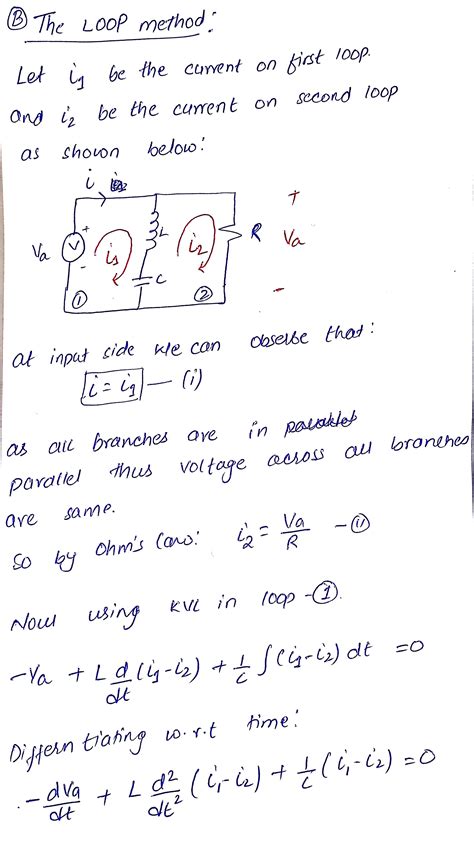 Ⓑ The LOOP method:
Let i₁ be the current on first loop.
and i₂ be the current on second loop
as shown below:
i
+
Va V + - i₁ L i₂ R Va
C
① ②
-
at input side we can observe that:
i = i₁ — (i)
as all branches are in
parallel thus voltage across all branches
are same.
So by Ohm's law: i₂ = Va/R — (ii)
Now using KVL in loop-①.
-Va + L d/dt (i₁-i₂) + 1/C ∫(i₁-i₂) dt = 0
Differntiating w.r.t time:
-dVa/dt + L d²/dt² (i₁-i₂) + 1/C (i₁-i₂) = 0